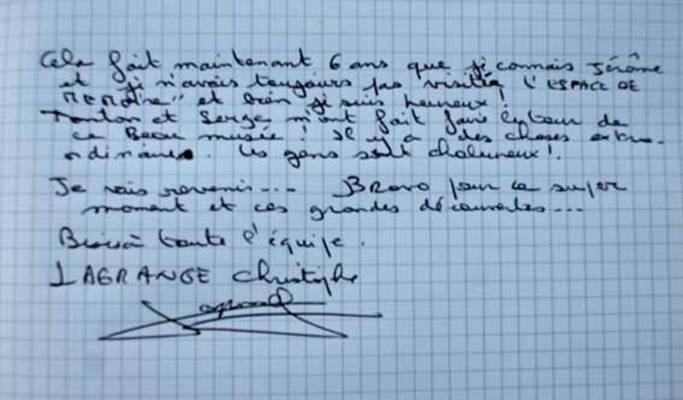 Cela fait maintenant 6 ans que je connais Jérôme
et je n'avais toujours pas visité "L'ESPACE DE
MEMOIRE" et bien je suis heureux !
Tonton et Serge m'ont fait faire le tour de
ce Beau musée ! Il y a des choses extra-
ordinaires. Les gens sont chaleureux !.
Je vais revenir... BRAVO pour ce super
moment et ces grandes découvertes...
Bises à toute l'équipe.
LAGRANGE Christophe